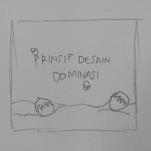 PRINSIP DESAIN
DOMINASI